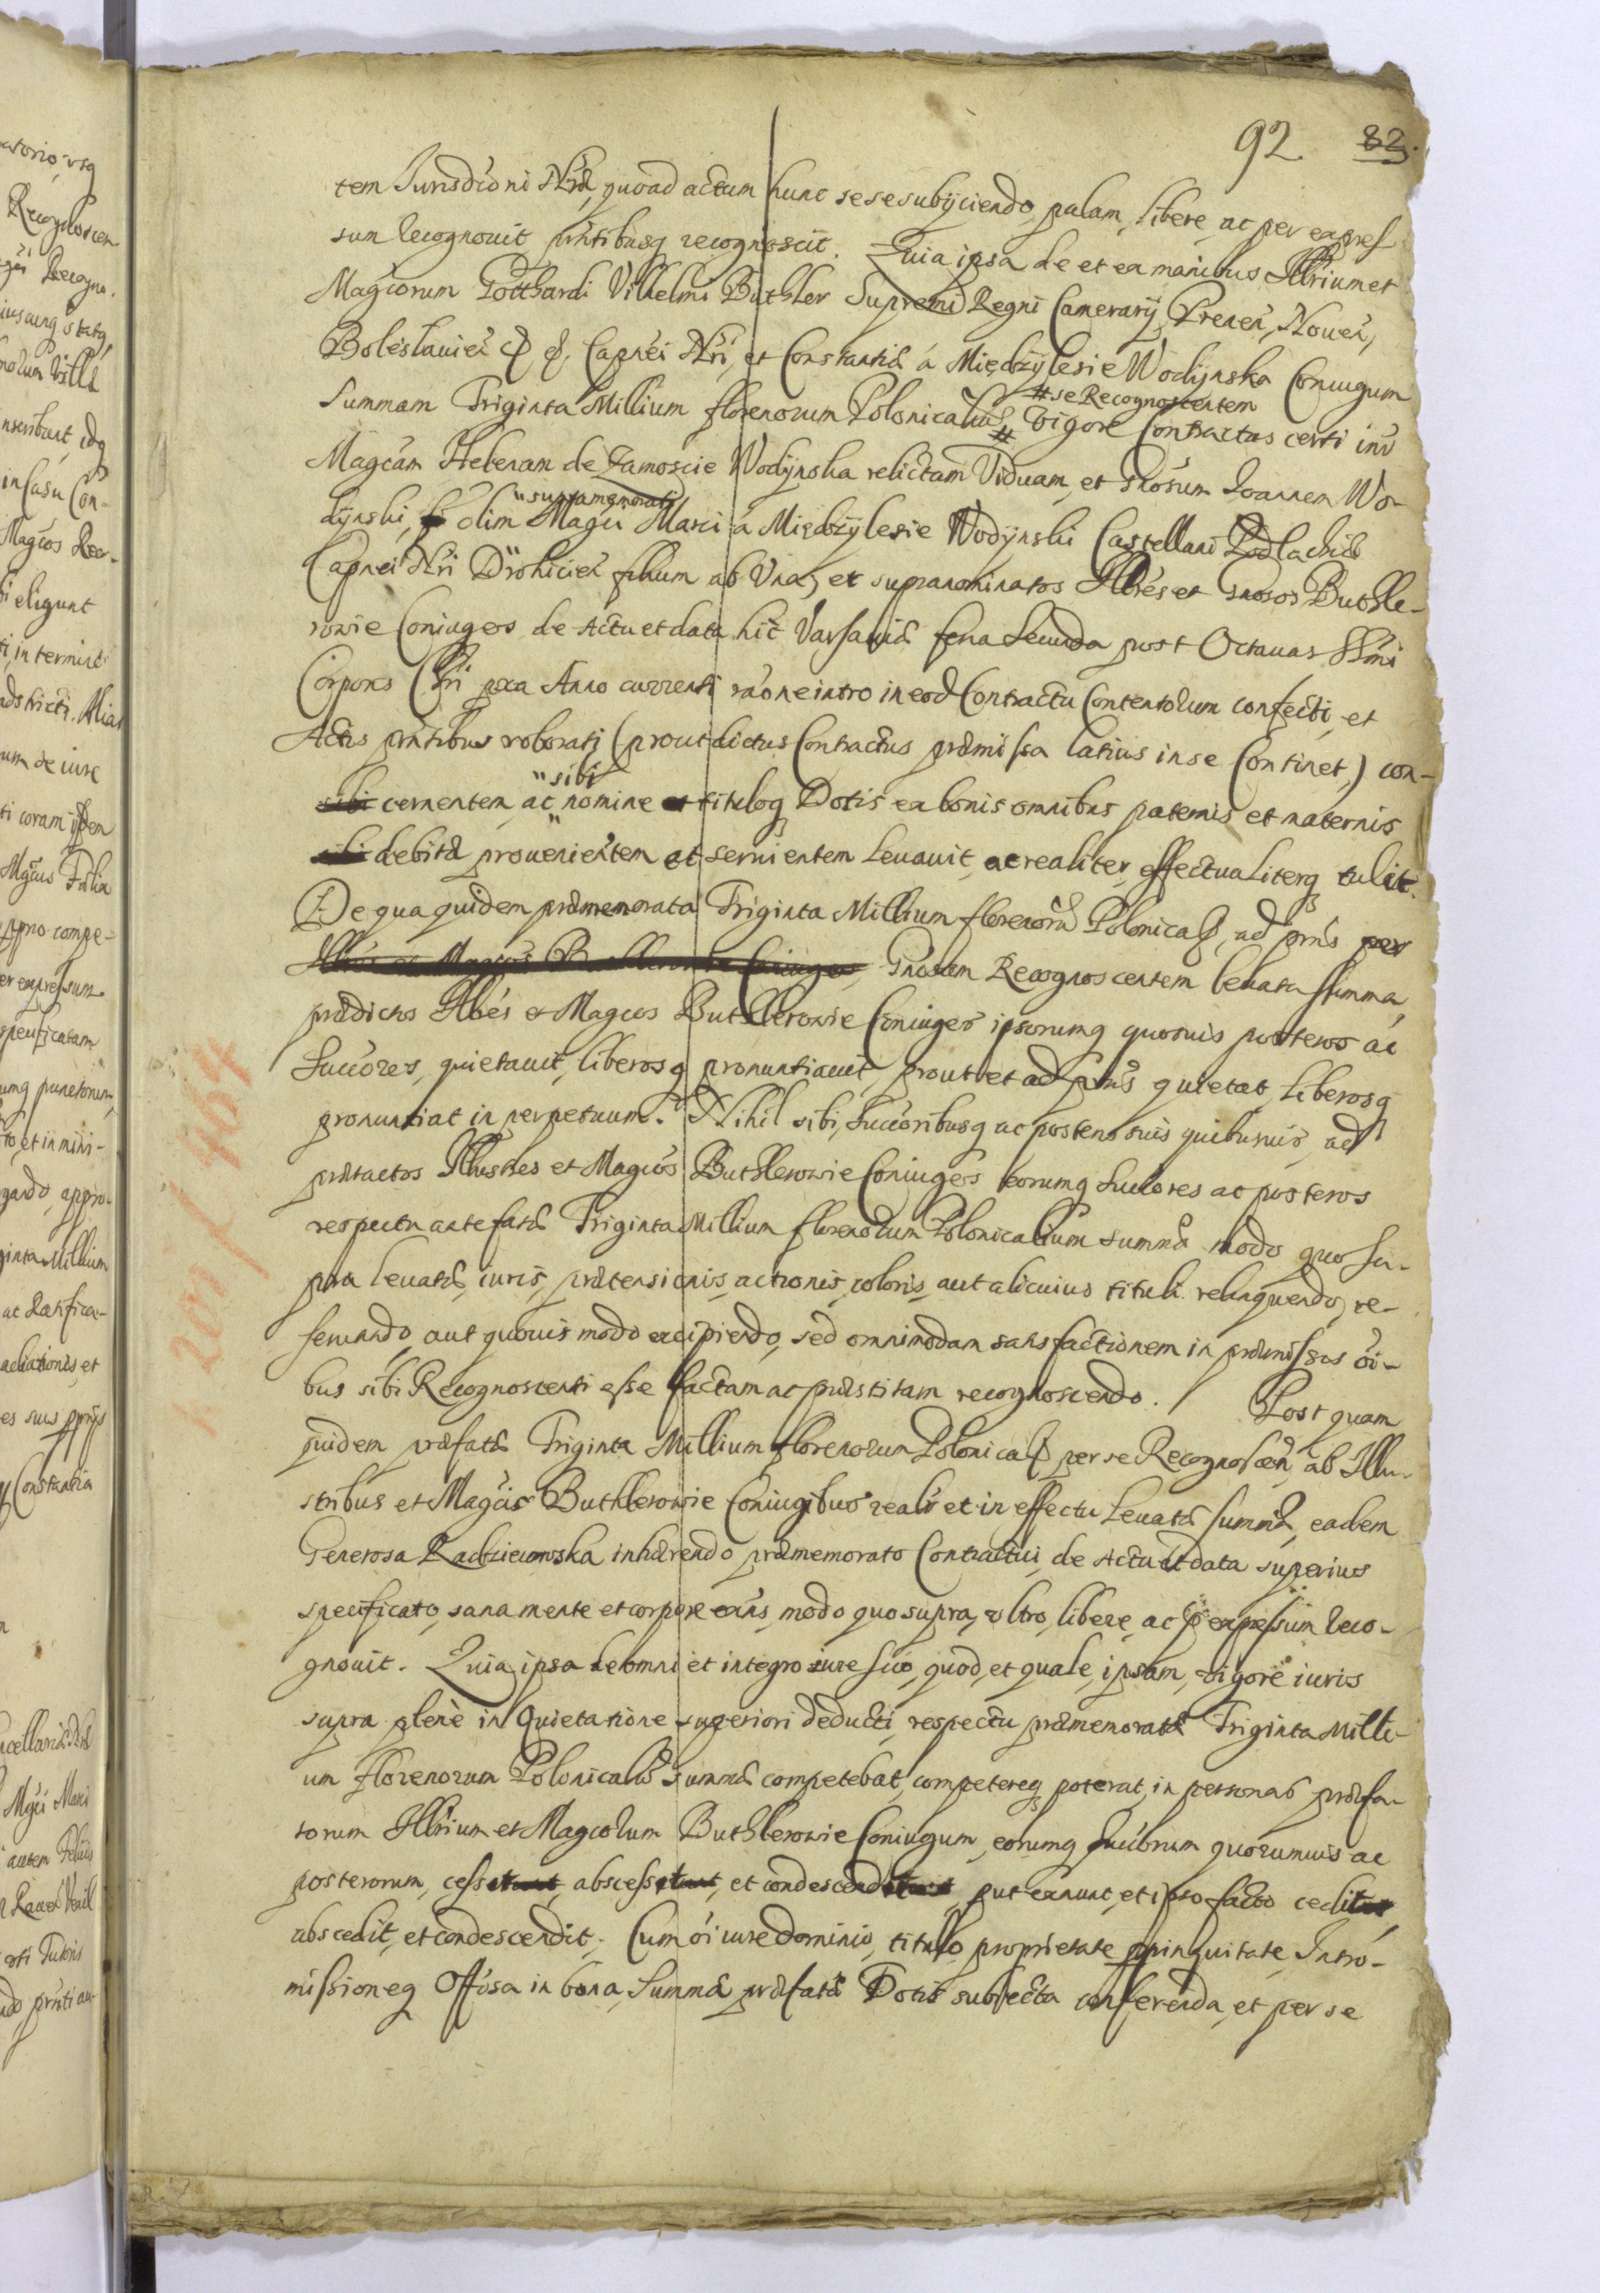 92 82.
tem Iurisdictioni Nrã, quoad actum hunc sese subijciendo, palam, libere, ac per expres-
sum recognovit prñtibusq recognoscit. Quia ipsa de et ex manibus Illrium et
Magcorum Gotthardi Vilhelmi Buthler Supremi Regni Camerarij, Prenen, Noven,
Boleslavien & & Capnei Nri, et Constantiæ a Międzylesie Wodijnska Coniugum
#se Recognoscentem
Summam Triginta Millium florenorum Polonicaliũ # vigore Contractus certi inter
Magcam Helenam de Zamoscie Wodijnska relictam Viduam, et Gnosum Ioannem Wo-
"supramemorati
dijnski, olim Magci Marci a Międzylesie Wodijnski Castellani Podlachiæ
Capnei Nri Drohicien filium ab Una, et supranominatos Illres et Gnosos Buthle-
rowie Coniuges de Actu et data hic Varsaviæ feria Secunda post Octavas SSmi
Corporis Chri pxa Anno currenti raõne intro in eod Contractu Contentorum confecti, et
Actis prñtibus roborati (prout dictus Contractus præmissa latius in se Continet,) con-
"sibi
cernentem, ac nomine et tituloq Dotis ex bonis omnibus paternis et maternis
debitæ provenientem et servientem levavit, ac realiter, effectualiterq tulit.
De qua quidem præmemorata Triginta Millium florenorũ Polonical, ad prns per
Illres et Magcos Buthlerowie Coniuges, Gnosam Recognoscentem levata summa,
prædictos Illres et Magcos Buthlerowie Coniuges ipsorumq quosvis posteros ac
Succores, quietavit, liberosq pronuntiavit, prout et ad prns quietat, liberosq
pronuntiat in perpetuum. Nihil sibi, Succoribusq ac posteris suis quibusvis, ad
prætactos Illustres et Magcos Buthlerowie Coniuges eorumq Succores ac posteros
respectu antefatæ Triginta Millium florenorum Polonicalium summæ modo quo su-
pra levatæ, iuris, prætensionis, actionis, coloris, aut alicuius tituli relinquendo, re-
servando, aut quovis modo excipiendo, sed omnimodam satisfactionem in præmissis oi-
bus sibi Recognoscenti esse factam ac præstitam recognoscendo. Post quam
quidem præfatæ Triginta Millium florenorum Polonical per se Recognoscen, ab Illu-
stribus et Magcis Buthlerowie Coniugibus realr et in effectu levatæ summæ, eadem
Generosa Radzieiowska inhærendo præmemorato Contractui, de Actu et data superius
specificato, sana mente et corpore exns, modo quo supra, ultro, libere, ac p expressum reco-
gnovit. Quia ipsa de omni et integro iure suo, quod, et quale, ipsam, vigore iuris
supra plene in Quietatione superiori deducti, respectu præmemoratæ Triginta Milli-
um florenorum Polonicaliũ summæ competebat, competereq poterat, in personas præfa-
torum Illrium et Magcorum Buthlerowie Coniugum, eorumq Succorum quorumvis ac
posterorum, cessit, abscessit, et condescendit put exnunc, et ipso facto cedit
abscedit, et condescendit. Cum oi iure dominio, titulo, proprietate ppinquitate, Intro-
missioneq Offosa in bona, Summæ præfatæ Dotis subiecta conferenda, et per se